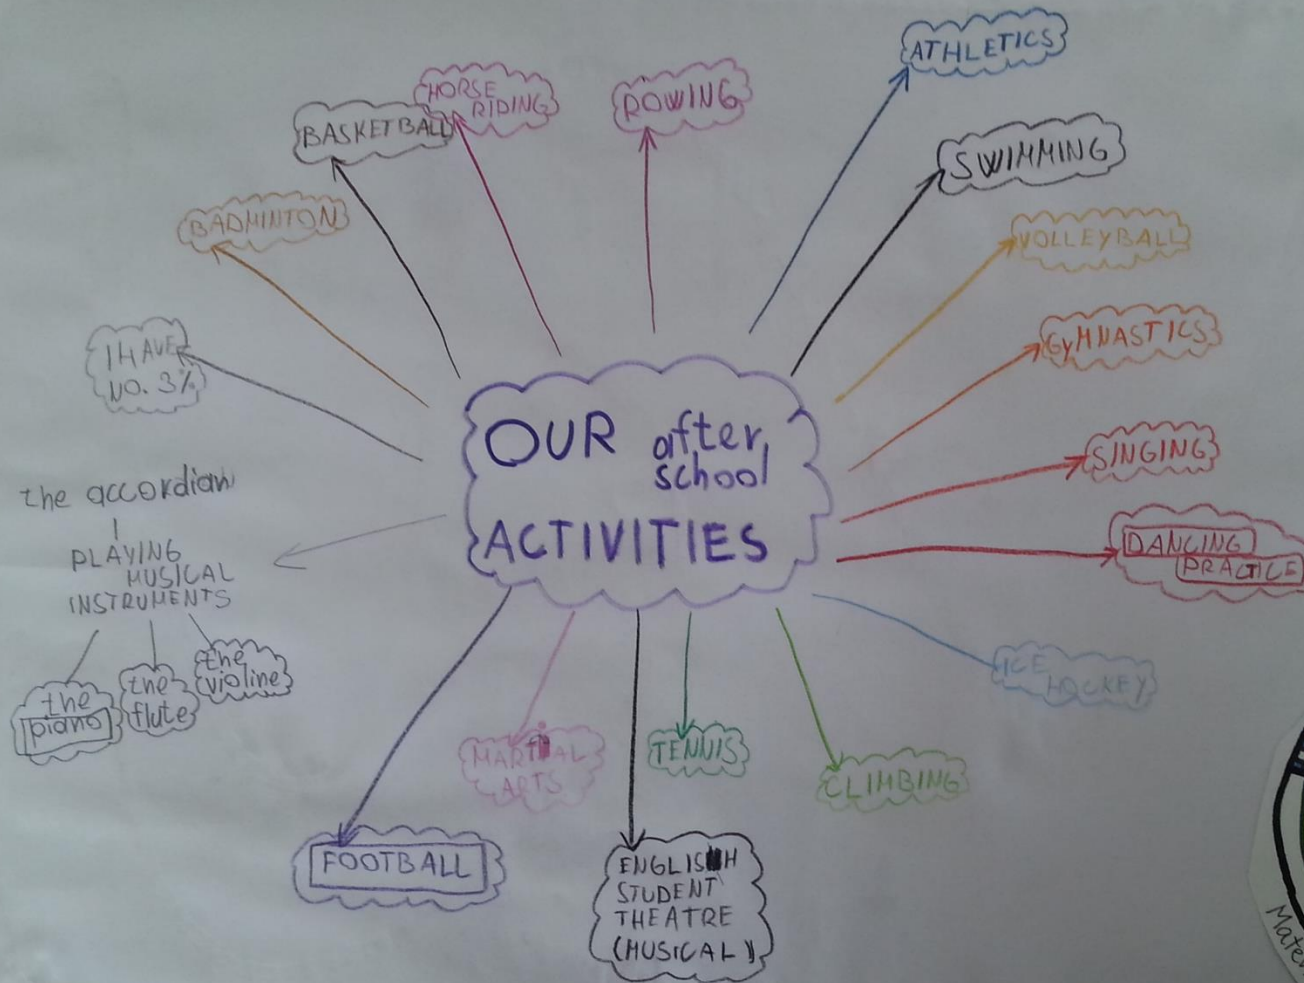 OUR after
school
ACTIVITIES
ATHLETICS
SWIMMING
VOLLEYBALL
GYMNASTICS
SINGING
DANCING
PRACTICE
ICE
HOCKEY
CLIMBING
TENNIS
ENGLISH
STUDENT
THEATRE
(MUSICAL)
MARTIAL
ARTS
FOOTBALL
the accordian
PLAYING
MUSICAL
INSTRUMENTS
the
piano
the
flute
the
violine
I HAVE
NO. 3%
BADMINTON
BASKETBALL
HORSE
RIDING
ROWING